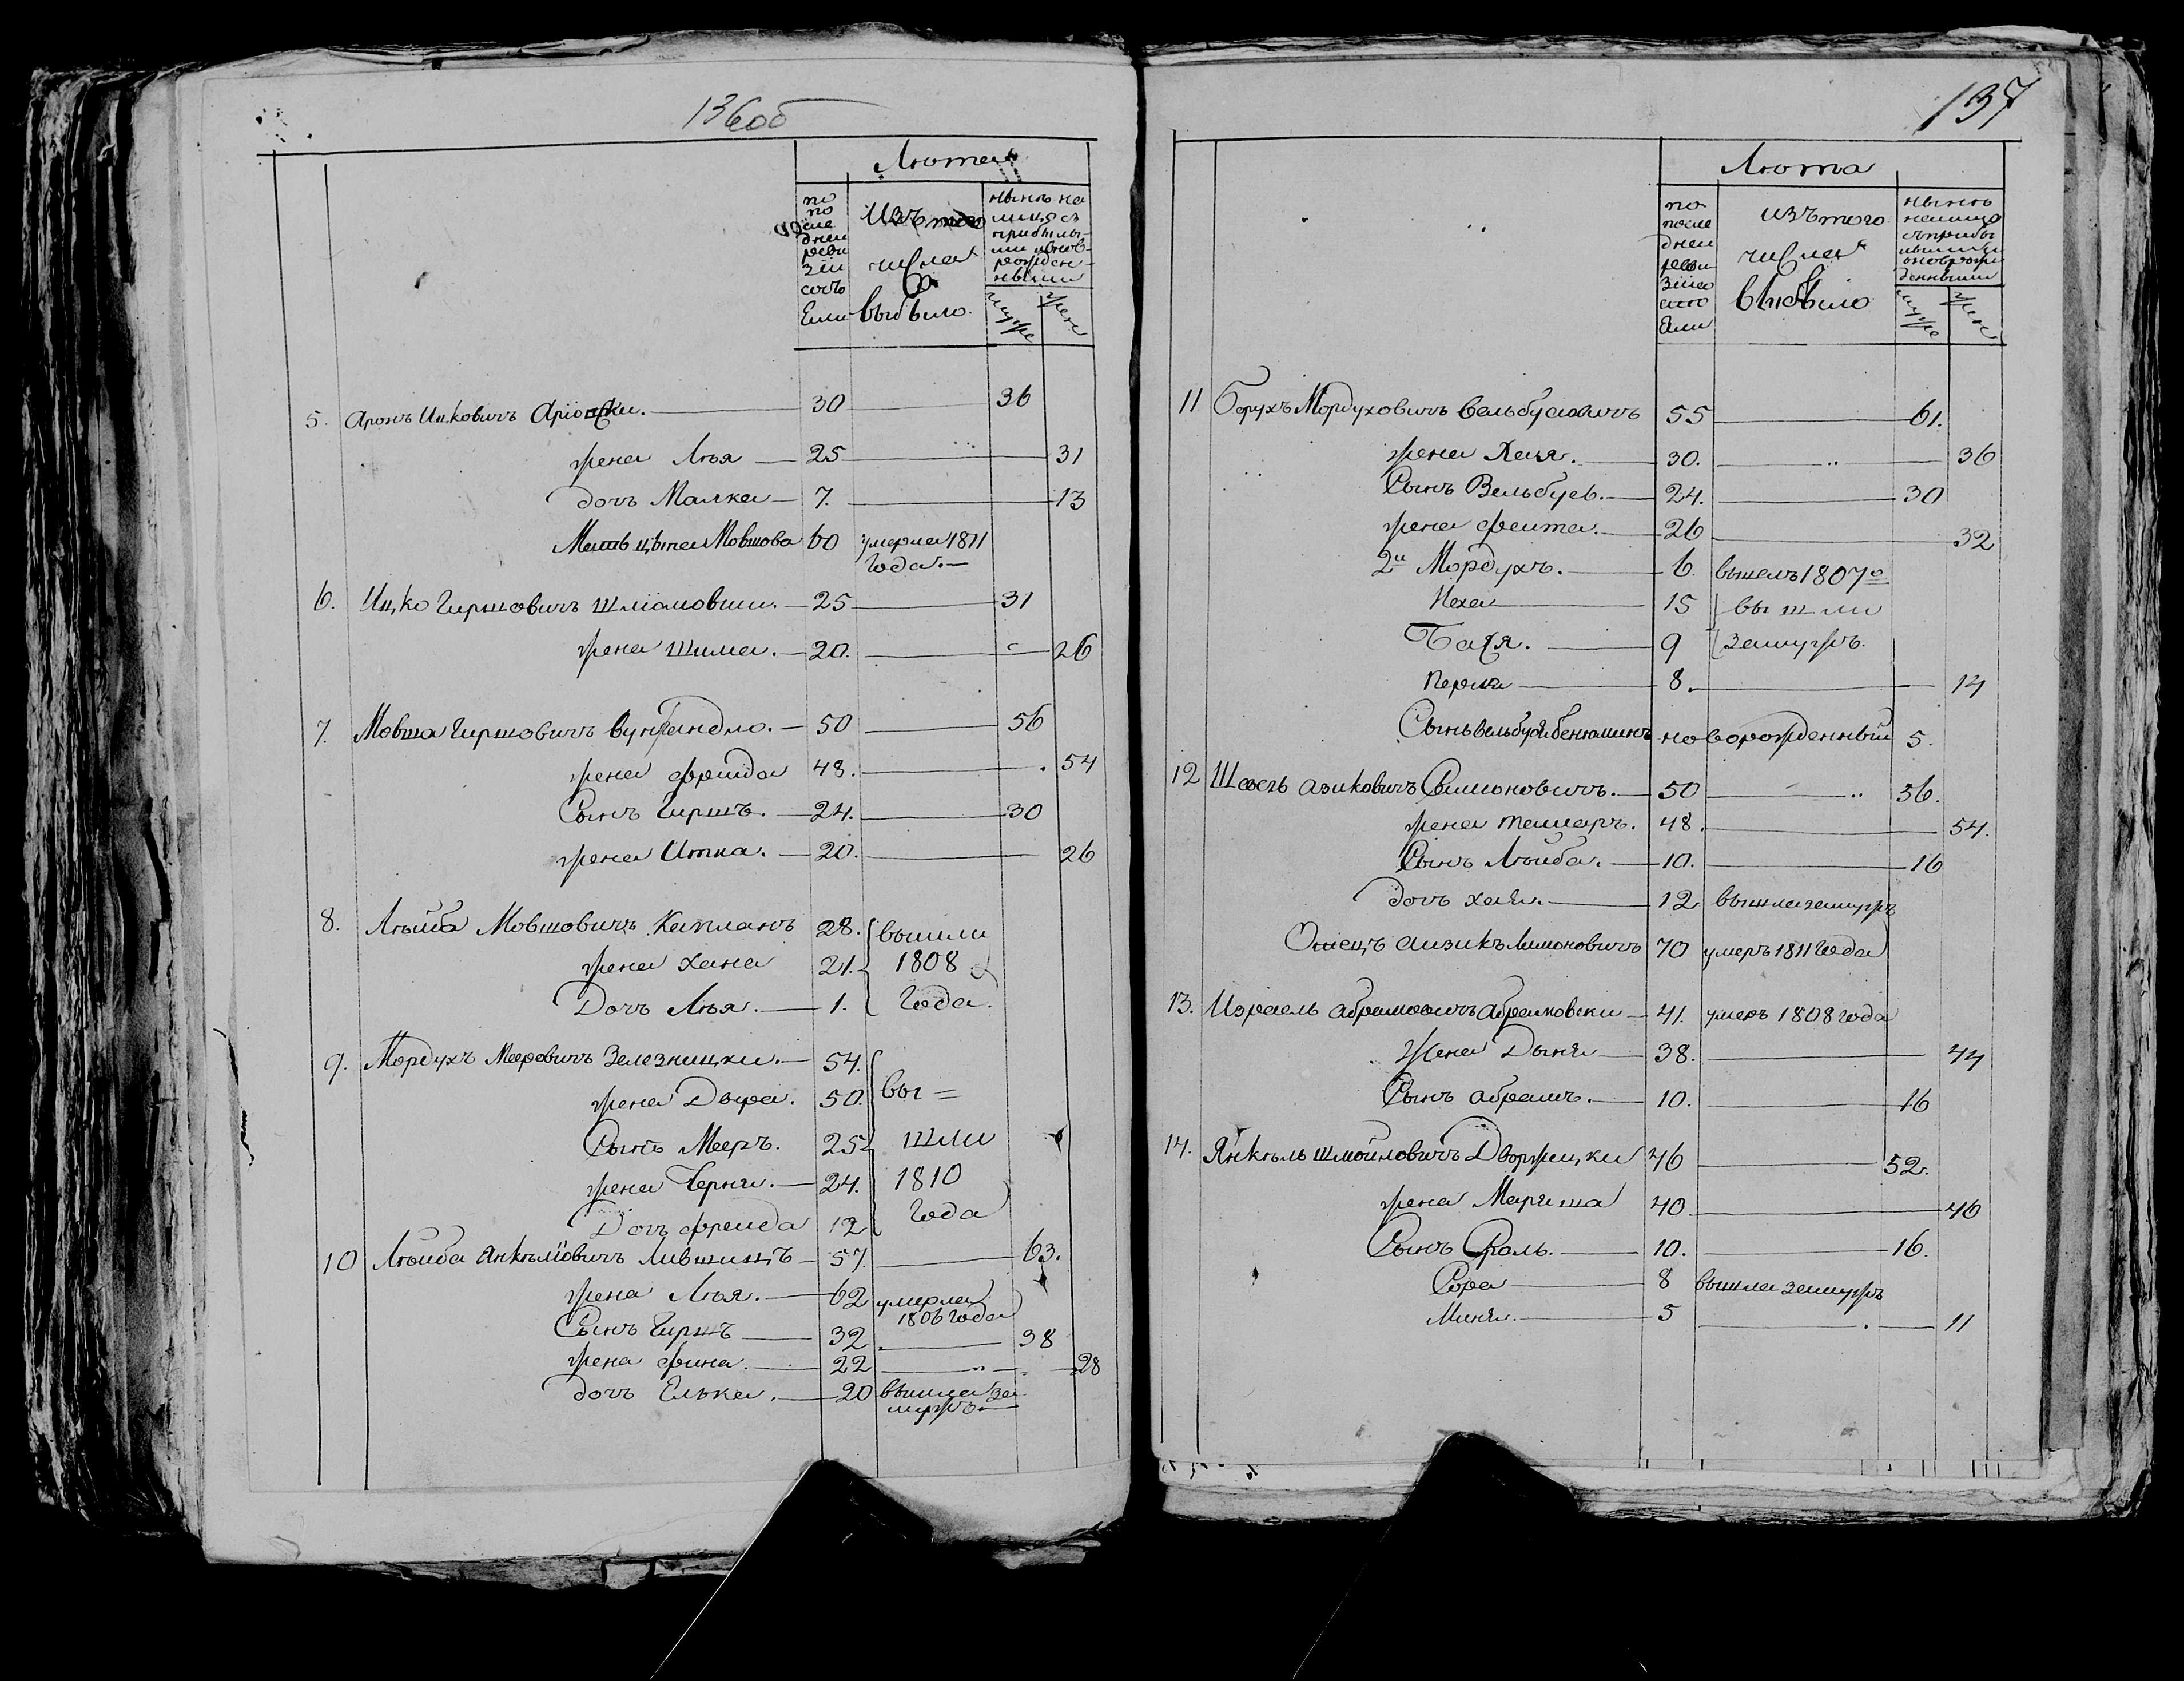 136об
Люта
по последней ревизiи состояли
изъ того числа выбыло
нынѣ на лицо съ прибылыми и новорожденными
муже
жен
5. Аронъ Ицковичъ — 30 — 36
жена Лѣя — 25 — 31
дочь Малка — 7. — 13
Мать Цыпа Мовшова 60 умерла 1811
года. —
6. Ицко Гиршовичъ Шлiомовичи. — 25 — 31
жена Шима. — 20. — 26
7. Мовша Гиршовичъ — 50 — 56
жена Фреида 48. — 54
Сынъ Гиршъ. — 24. — 30
жена Итка. — 20. — 26
8. Лѣиба Мовшовичъ Капланъ 28. вышли
жена Хана 21. 1808
Дочь Лѣя. — 1. года.
9. Мордухъ Меровичъ Зелезницки. — 54.
жена Двера. 50. вы =
Сынъ Мееръ. 25 шли
жена Черня. — 24. 1810
Дочь Фреида 12 года
10 Лѣиба Янкѣлiовичъ Лившицъ — 57. — 63.
жена Лѣя. — 62 умерла
1806 года
Сынъ Гиршъ — 32 — 38
жена Фина. — 22 — 28
дочь Елька. — 20 вышла за
мужъ —
137
Люта
по последней ревизiи состояли
изъ того числа выбыло
нынѣ на лицо съ прибылыми и новорожденными
муже
жен
11 Борухъ Мордуховичъ Вельбусовичъ 55 — 61.
жена Хая. — 30. — 36
Сынъ Вельбусь. — 24. — 30
жена Феита. — 26 — 32
2й Мордухъ. — 6 вышелъ 1807го
Неха — 15 вышли
Бася. — 9 замужъ.
Перля — 8. — 14
Сынъ Вельбуся Бенюминъ новорожденный 5.
12 Азиковичъ Симоновичъ. — 50 — 56.
жена Тамаръ. 48. — 54.
Сынъ Лѣиба. — 10. — 16
дочь Хая. — 12 вышла замужъ
Отецъ Аизикъ Лимоновичъ 70 умеръ 1811 года
13. Израель Абрамовичъ Абрамовски — 41. умеръ 1808 года
Жена Дыня — 38. — 44
Сынъ Абрамъ. — 10. — 16
14. Янкѣль Шмоиловичъ Дворжецки 46 — 52.
жена Маряша 40. — 46
Сынъ Сроль. — 10. — 16.
Сора — 8 вышла замужъ
Миня. — 5 — 11